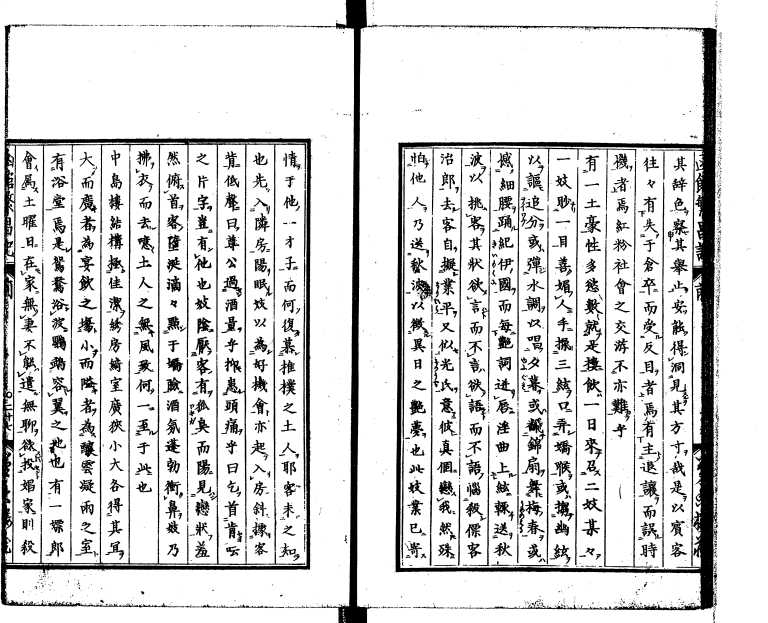 其辭色察其擧止安能得洞見其方寸哉是以賓客
往々有失于倉卒而受反目者焉有主退讓而誤時
機者焉紅粉社會之交游不亦難乎
有一土豪性多慾數就是樓飮一日來召二妓某々
一妓眇一目善媚人手振三絃口弄嬌喉或撥幽絃
以謳追分或彈水調以唱夕暮或飜錦扇舞梅春或
撼細腰踊紀伊國而每艷詞迸唇淫曲上絃輒送秋
波以挑客其狀欲言而不言欲語而不語惱殺傑客
冶郎去客自擬業平又似光氏意彼真個戀我然殊
怕他人乃送秋波以微異日之艷夢也此妓業已寄
情于他一才子而何復慕推樸之土人耶客未之知
也先入隣房陽眠妓以為好機會亦起入房斜據客
肯低聲曰尊公過酒量乎抑患頭痛乎曰乞首肯云
之片字豈有他也妓陰壓客有狐臭而陽見戀狀羞
然俯首客墮涎滴々點于嬌臉酒氛蓬勃衝鼻妓乃
拂衣而去噫土人之無風致何一至于此也
中島樓結構極佳潔綺房綺室廣狹小大各得其冝
大而廣者為宴飮之塲小而隘者為釀雲凝雨之室
有浴室焉是鴛鴦浴波鸚鵡容翼之池也有一嫖郎
會屬土曜日在家無妻不能遣無聊欲投娼家則殺